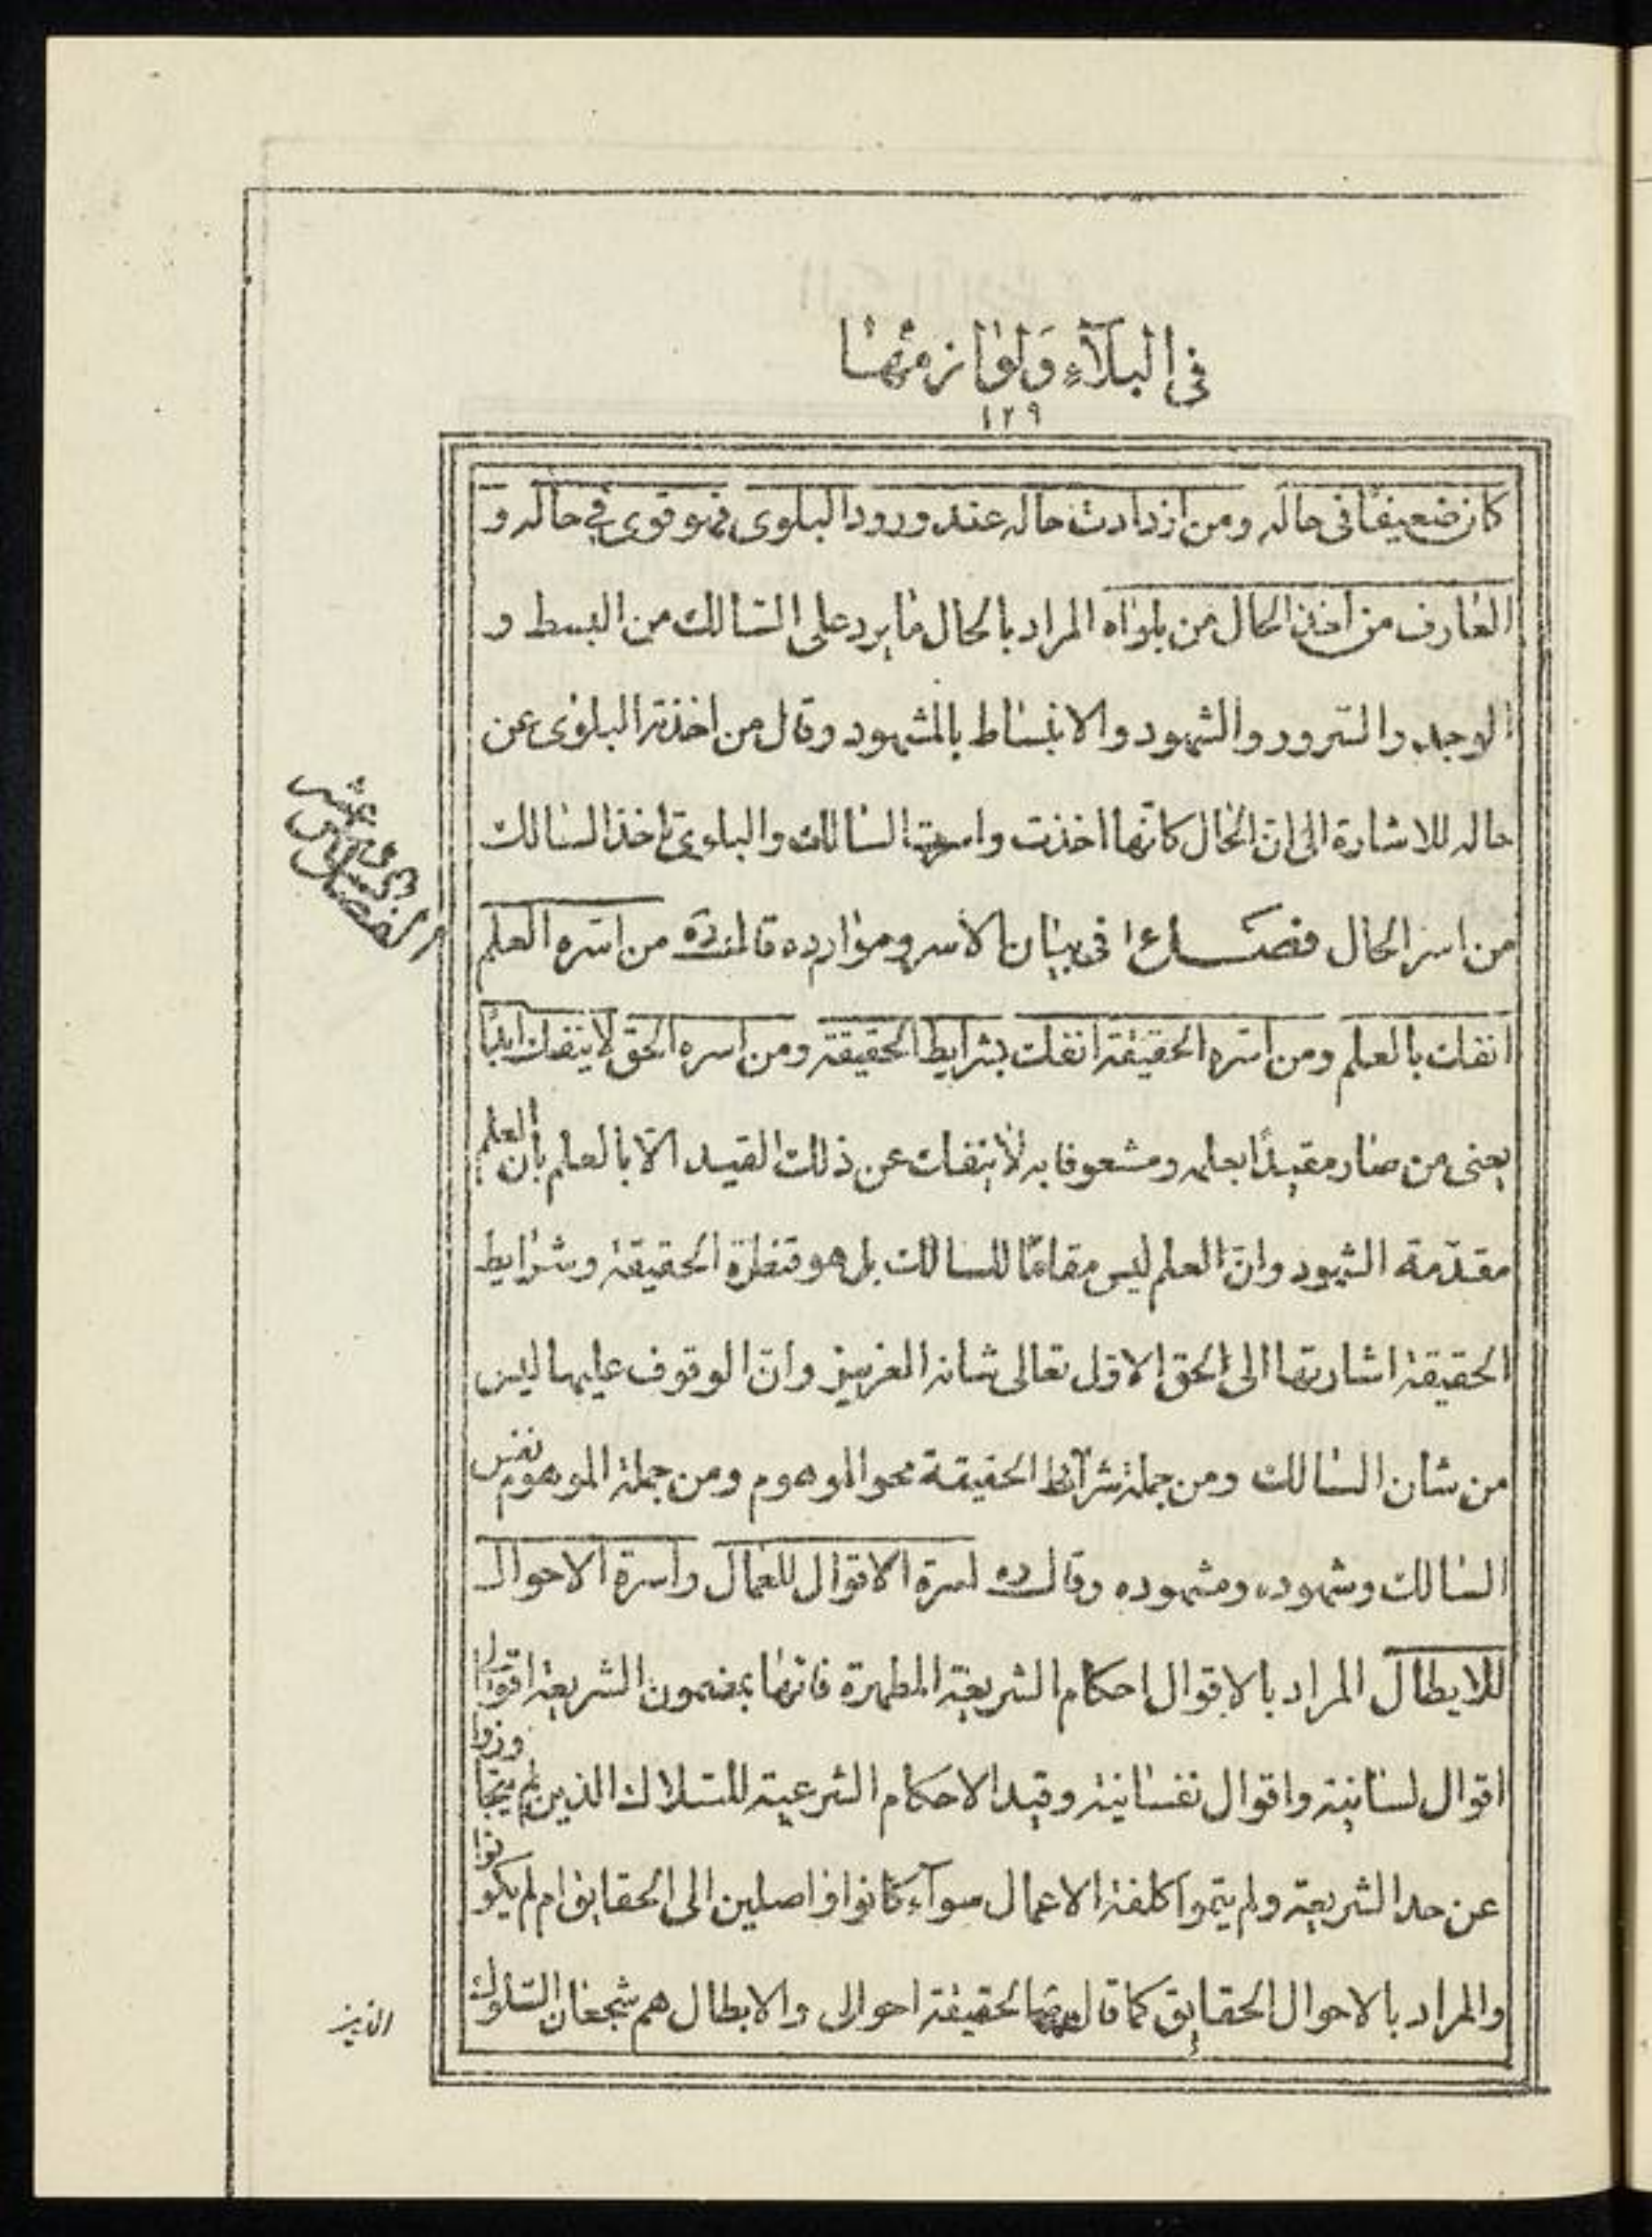 في البلآء ولوازمها
١٢٩
كان ضعيفا في حاله ومن ازدادت حاله عند ورود البلوى فهو قوى في حاله و
العارف من اخذ الحال من بلواه المراد بالحال ما يرد على السالك من البسط و
الوجد والسرور والشهود والانبساط بالمشهود وقال من اخذته البلوى عن
حاله للاشارة الى ان الحال كانها اخذت واسرت السالك والبلوى تاخذ السالك
من اسر الحال فصل في بيان الاسر وموارده قال قده من اسره العلم
انفك بالعلم ومن اسره الحقيقة انفك بشرايط الحقيقة ومن اسره الحق لا ينفك ابدًا
يعنى من صار مقيدًا بعلمه ومشعوفا به لا ينفك عن ذلك القيد الّا بالعلم بان العلم
مقدّمة الشهود وانّ العلم ليس مقامًا للسالك بل هو قنطرة الحقيقة وشرايط
الحقيقة اشارتها الى الحق الاول تعالى شانه العزيز وانّ الوقوف عليها ليس
من شان السالك ومن جملة شرائط الحقيقة محو الموهوم ومن جملة الموهوم نفس
السالك وشهوده ومشهوده وقال ده اسرة الاقوال للعمال واسرة الاحوال
للابطال المراد بالاقوال احكام الشريعة المطهرة فانها بمضمون الشريعة اقوالى
اقوال لسانية واقوال نفسانية وقيد الاحكام الشرعية للسلاك الذين لم يتجاوزوا
عن حد الشريعة ولم يتموا كلفة الاعمال سوآء كانوا واصلين الى الحقايق ام لم يكونوا
والمراد بالاحوال الحقايق كما قال الحقيقة احوالى والابطال هم شجعان السلوك
الذين